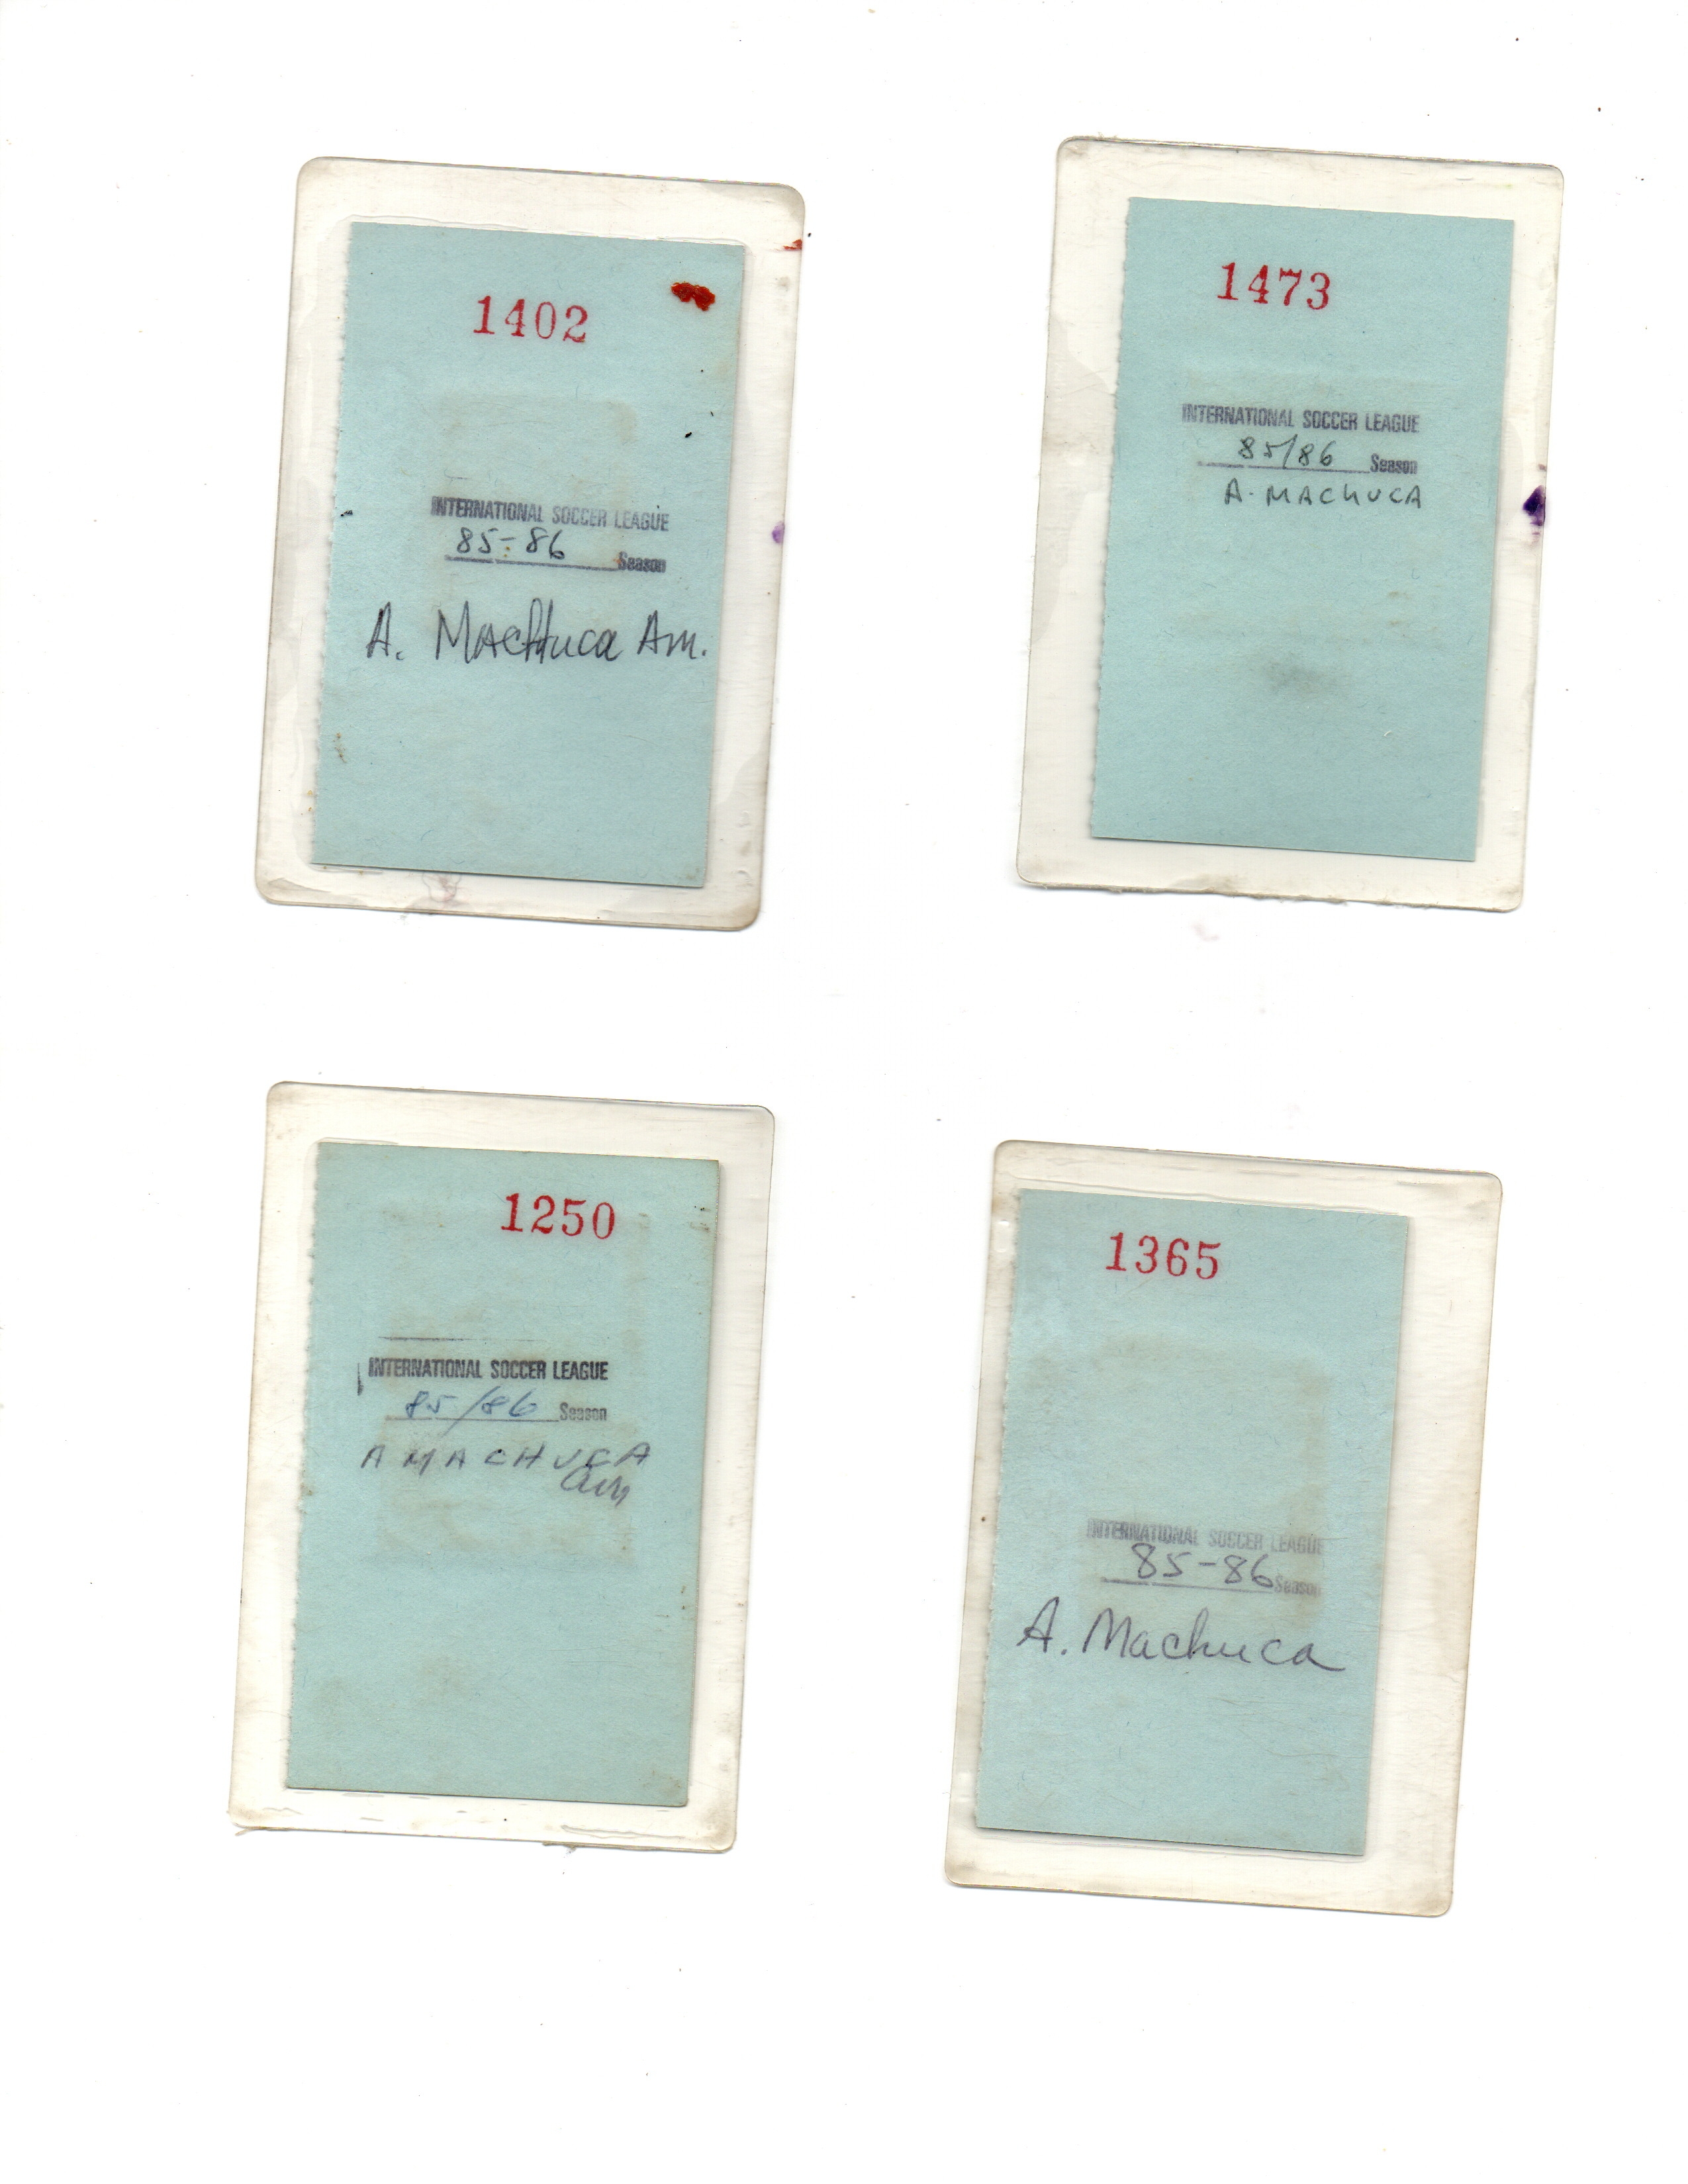 1402
INTERNATIONAL SOCCER LEAGUE
85-86 Season
A. Machuca Am.
1473
INTERNATIONAL SOCCER LEAGUE
85/86 Season
A. MACHUCA
1250
INTERNATIONAL SOCCER LEAGUE
85/86 Season
A MACHUCA
am
1365
INTERNATIONAL SOCCER LEAGUE
85-86 Season
A. Machuca